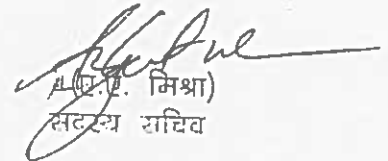 मिश्रा)
सदस्य सचिव